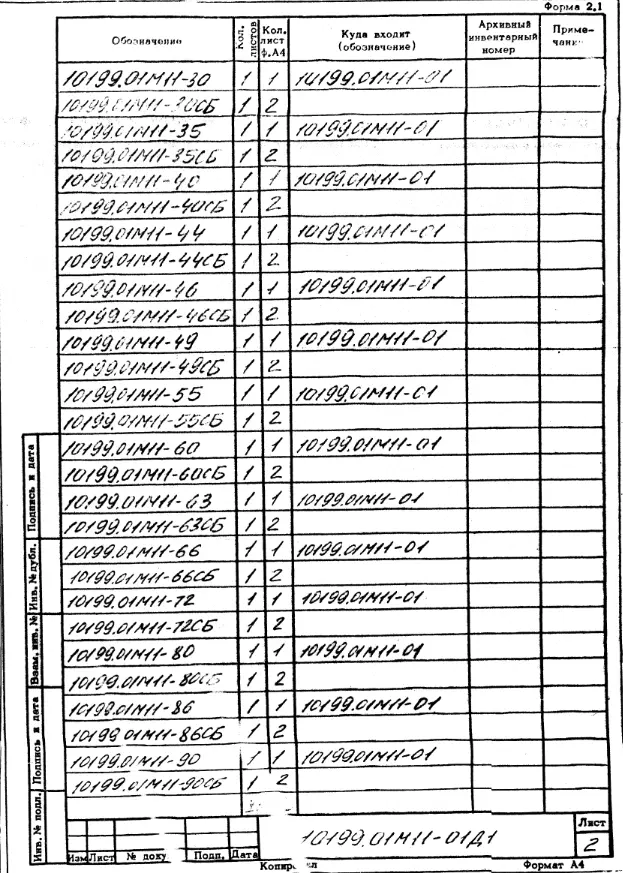 Форма 2.1
Обозначение Кол. листов Кол. лист ф.А4 Куда входит (обозначение) Архивный инвентарный номер Приме-
10199.01М11-30 1 1 10199.01М11-01
10199.01М11-30СБ 1 2
10199.01М11-35 1 1 10199.01М11-01
10199.01М11-35СБ 1 2
10199.01М11-40 1 1 10199.01М11-01
10199.01М11-40СБ 1 2
10199.01М11-44 1 1 10199.01М11-01
10199.01М11-44СБ 1 2
10199.01М11-46 1 1 10199.01М11-01
10199.01М11-46СБ 1 2
10199.01М11-49 1 1 10199.01М11-01
10199.01М11-49СБ 1 2
10199.01М11-55 1 1 10199.01М11-01
10199.01М11-55СБ 1 2
10199.01М11-60 1 1 10199.01М11-01
10199.01М11-60СБ 1 2
10199.01М11-63 1 1 10199.01М11-01
10199.01М11-63СБ 1 2
10199.01М11-66 1 1 10199.01М11-01
10199.01М11-66СБ 1 2
10199.01М11-72 1 1 10199.01М11-01
10199.01М11-72СБ 1 2
10199.01М11-80 1 1 10199.01М11-01
10199.01М11-80СБ 1 2
10199.01М11-86 1 1 10199.01М11-01
10199.01М11-86СБ 1 2
10199.01М11-90 1 1 10199.01М11-01
10199.01М11-90СБ 1 2
Подпись и дата
Инв. № дубл.
Взам. инв. №
Подпись и дата
Инв. № подл.
Изм Лист № доку Подп. Дата
10199.01М11-01Д1
Лист
2
Формат А4